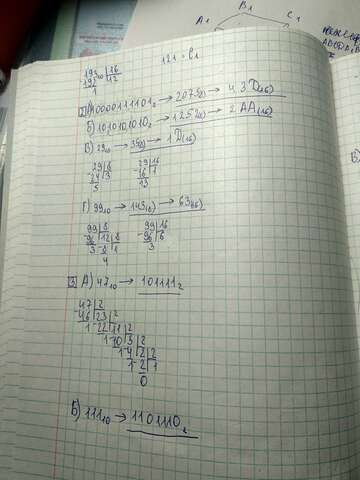 A1 B1 C1
121 - B1
193₁₀ | 16
192 | 12
1
2 А) 10000111101₂ → 2075₍₈₎ → 43D₍₁₆₎
Б) 1010101010₂ → 1252₍₈₎ → 2AA₍₁₆₎
В) 29₁₀ → 35₍₈₎ → 1D₍₁₆₎
29 | 8 29 | 16
-24 | 3 -16 | 1
5 13
Г) 99₁₀ → 143₍₈₎ → 63₍₁₆₎
99 | 8 99 | 16
-96 | 12 | 8 -96 | 6
3 - 8 | 1 3
4
3 А) 47₁₀ → 101111₂
47 | 2
-46 | 23 | 2
1 - 22 | 11 | 2
1 - 10 | 5 | 2
1 - 4 | 2 | 2
1 - 2 | 1
0
Б) 111₁₀ → 1101110₂